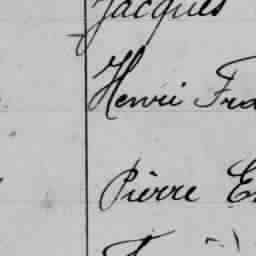 Jacques
Henri Fra
Pierre E